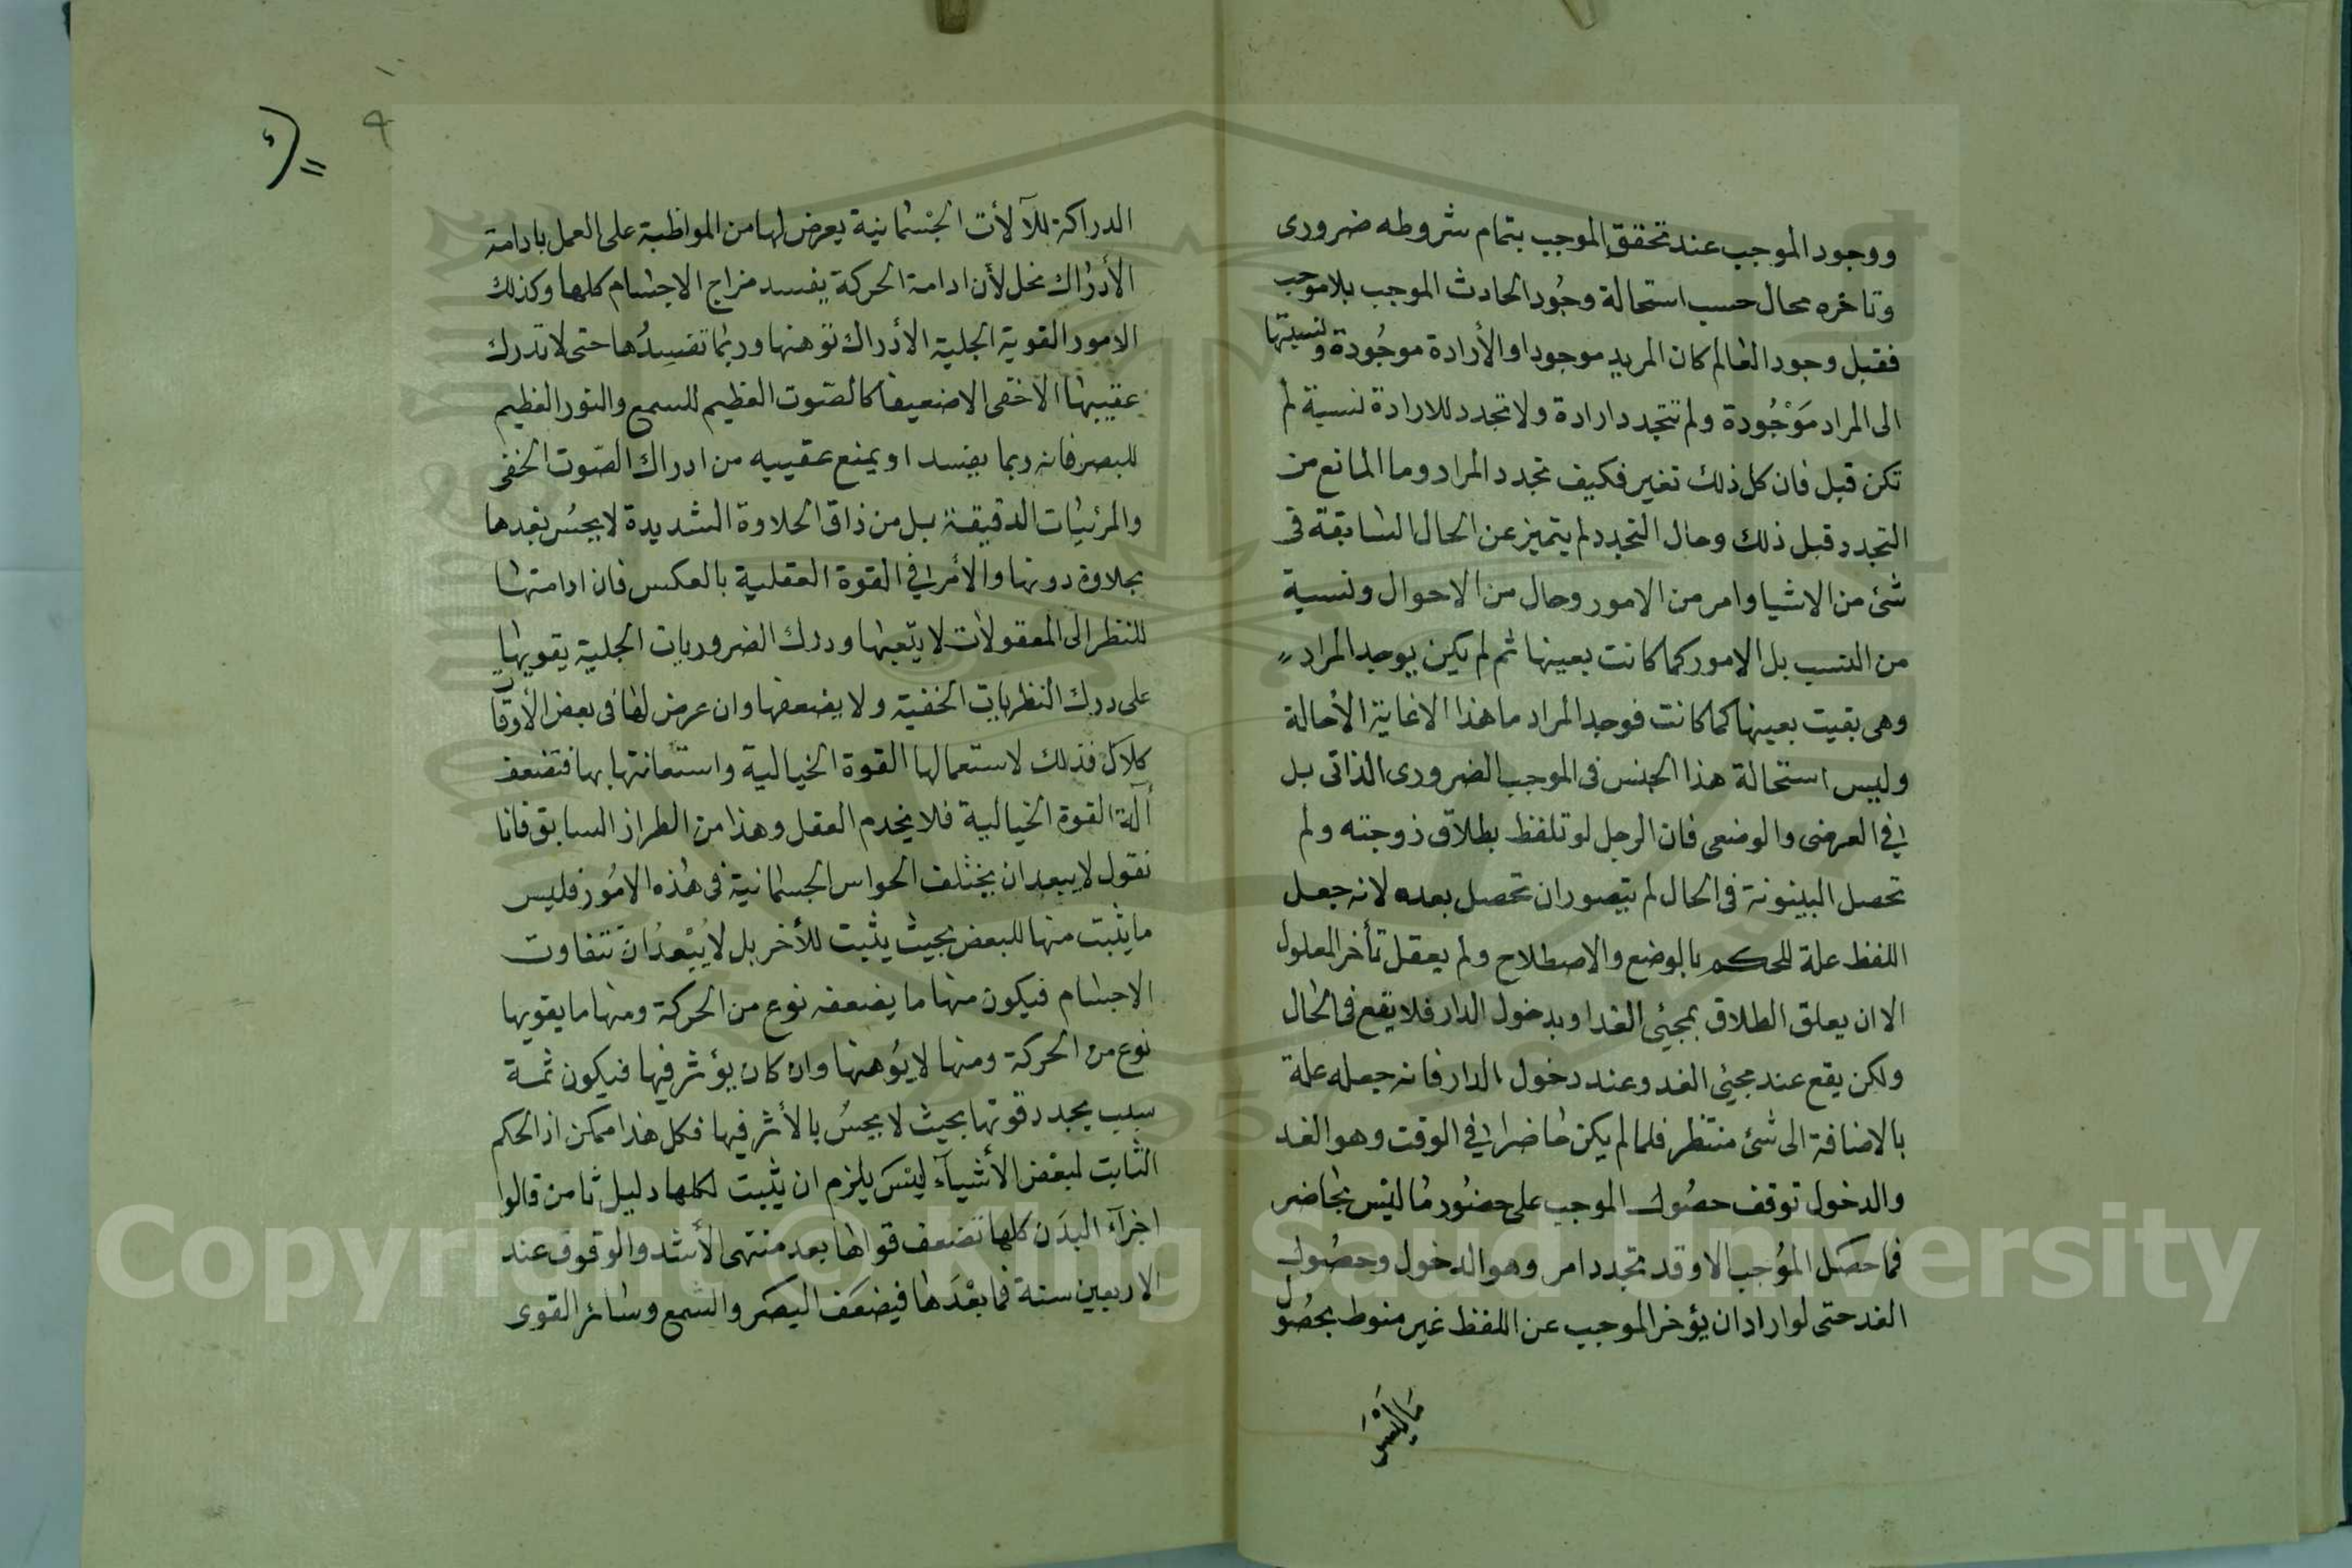 ووجود الموجب عند تحقق الموجب بتمام شروطه ضرورى
وتاخره محال حسب استحالة وجُود الحادث الموجب بلا موجب
فقبل وجود العالم كان المريد موجودا والأرادة موجُودة ونسبتها
الى المراد مَوْجُودة ولم تتجدد ارادة ولا تجدد للارادة نسبة لم
تكن قبل فان كل ذلك تغير فكيف تجدد المراد وما المانع من
التجدد قبل ذلك وحال التجدد لم يتميز عن الحال السابقة فى
شئ من الاشيا وامر من الامور وحال من الاحوال ونسبة
من النسب بل الامور كما كانت بعينها ثم لم يكن يوجد المراد
وهى بقيت بعينها كما كانت فوجد المراد ما هذا الا غاية الأحالة
وليس استحالة هذا الجنس فى الموجب الضرورى الذاتى بل
فى العرضى والوضعى فان الرجل لو تلفظ بطلاق زوجته ولم
تحصل البينونة فى الحال لم يتصور ان تحصل بعده لانه جعل
اللفظ علة للحكم بالوضع والاصطلاح ولم يعقل تأخر المعلول
الا ان يعلق الطلاق بمجيئ الغد او بدخول الدار فلا يقع فى الحال
ولكن يقع عند مجيئ الغد وعند دخول الدار فانه جعله علة
بالاضافة الى شئ منتظر فلما لم يكن حاضرا فى الوقت وهو الغد
والدخول توقف حصُول الموجب على حضُور مَا ليْس بحَاضر
فما حصَل المُوجب الا وقد تجدد امر وهو الدخول وحصُول
الغد حتى لو اراد ان يؤخر الموجب عن اللفظ غير منوط بحصُول
مَا ليْسَ
٩
الدراكة للآلأت الجْسْمانية يعرض لها من المواظبة على العمل بادامة
الأدرَاك نحل لأن ادامة الحركة يفسد مزاج الاجسَام كلها وكذلك
الامور القوية الجلية الأدراك توهنها وربما تفسِدُها حتى لا تدرك
عقيبهَا الاخفى الاضعيفا كالصّوت العظيم للسمع والنور العظيم
للبصر فانه ربما يفسد او يمنع عقيبه من ادراك الصّوت الخفى
والمرئيات الدقيقة بل من ذاق الحلاوة الشديدة لا يحسُ بعدها
بحلاوة دونها والأمر فى القوة العقلية بالعكس فان ادامتهَا
للنظر الى المعقولأت لا يتّعبها ودرك الضروريات الجلية يقويهَا
على درك النظريات الخفية ولا يضعفها وان عرض لهَا فى بعض الأوقات
كلال فذلك لاستعمالها القوة الخيالية واستعانتها بها فتضعف
آلة القوة الخيالية فلا يخدم العقل وهذا من الطراز السابق فانا
نقول لا يبعد ان يختلف الحواس الجسْمانية فى هٰذه الامُور فليس
ما يثبت منها للبعض بحيث يثبت للأخر بل لا يُبْعدُ ان تتفاوت
الاجسَام فيكون منهَا ما يضعفه نوع من الحركة ومنها ما يقويها
نوع من الحركة ومنها لا يُوهنها وان كان يؤثر فيها فيكون ثمة
سبب يجدد قوتها بحيث لا يحسُ بالأثر فيها فكل هذا ممكن اذ الحكم
الثابت لبعْض الأشيَآء ليْسَ يلزم ان يثبت لكلها دليل ثامن قالوا
اجزآء البدَن كلها تضعف قواهَا بعد منتهى الأشد والوقوف عند
الاربعين سنة فما بعْدَهَا فيضعَف البصَر والسَّمع وسَائر القوى
Copyright © King Saud University